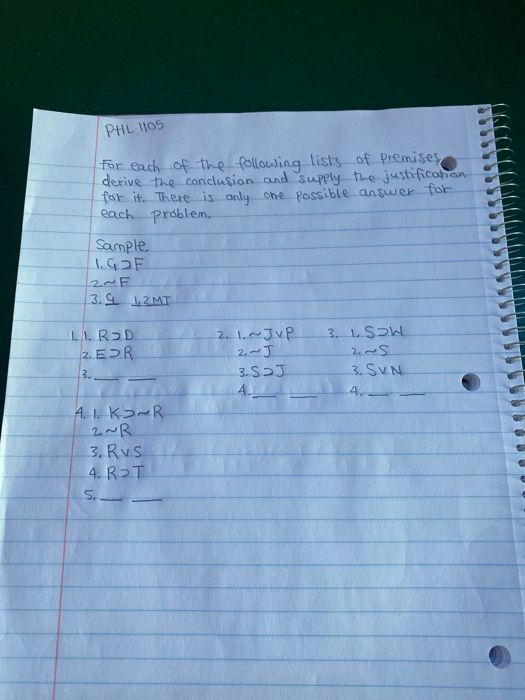 PHL 1105
For each of the following lists of premises,
derive the conclusion and supply the justification
for it. There is only one possible answer for
each problem.
Sample
1. G⊃F
2. ~F
3. G 1,2 MT
1. 1. R⊃D 2. 1. ~JvP 3. 1. S⊃W
2. E⊃R 2. ~J 2. ~S
3. __ __ 3. S⊃J 3. SvN
4. __ __ 4. __ __
4. 1. K⊃~R
2. ~R
3. RvS
4. R⊃T
5. __ __